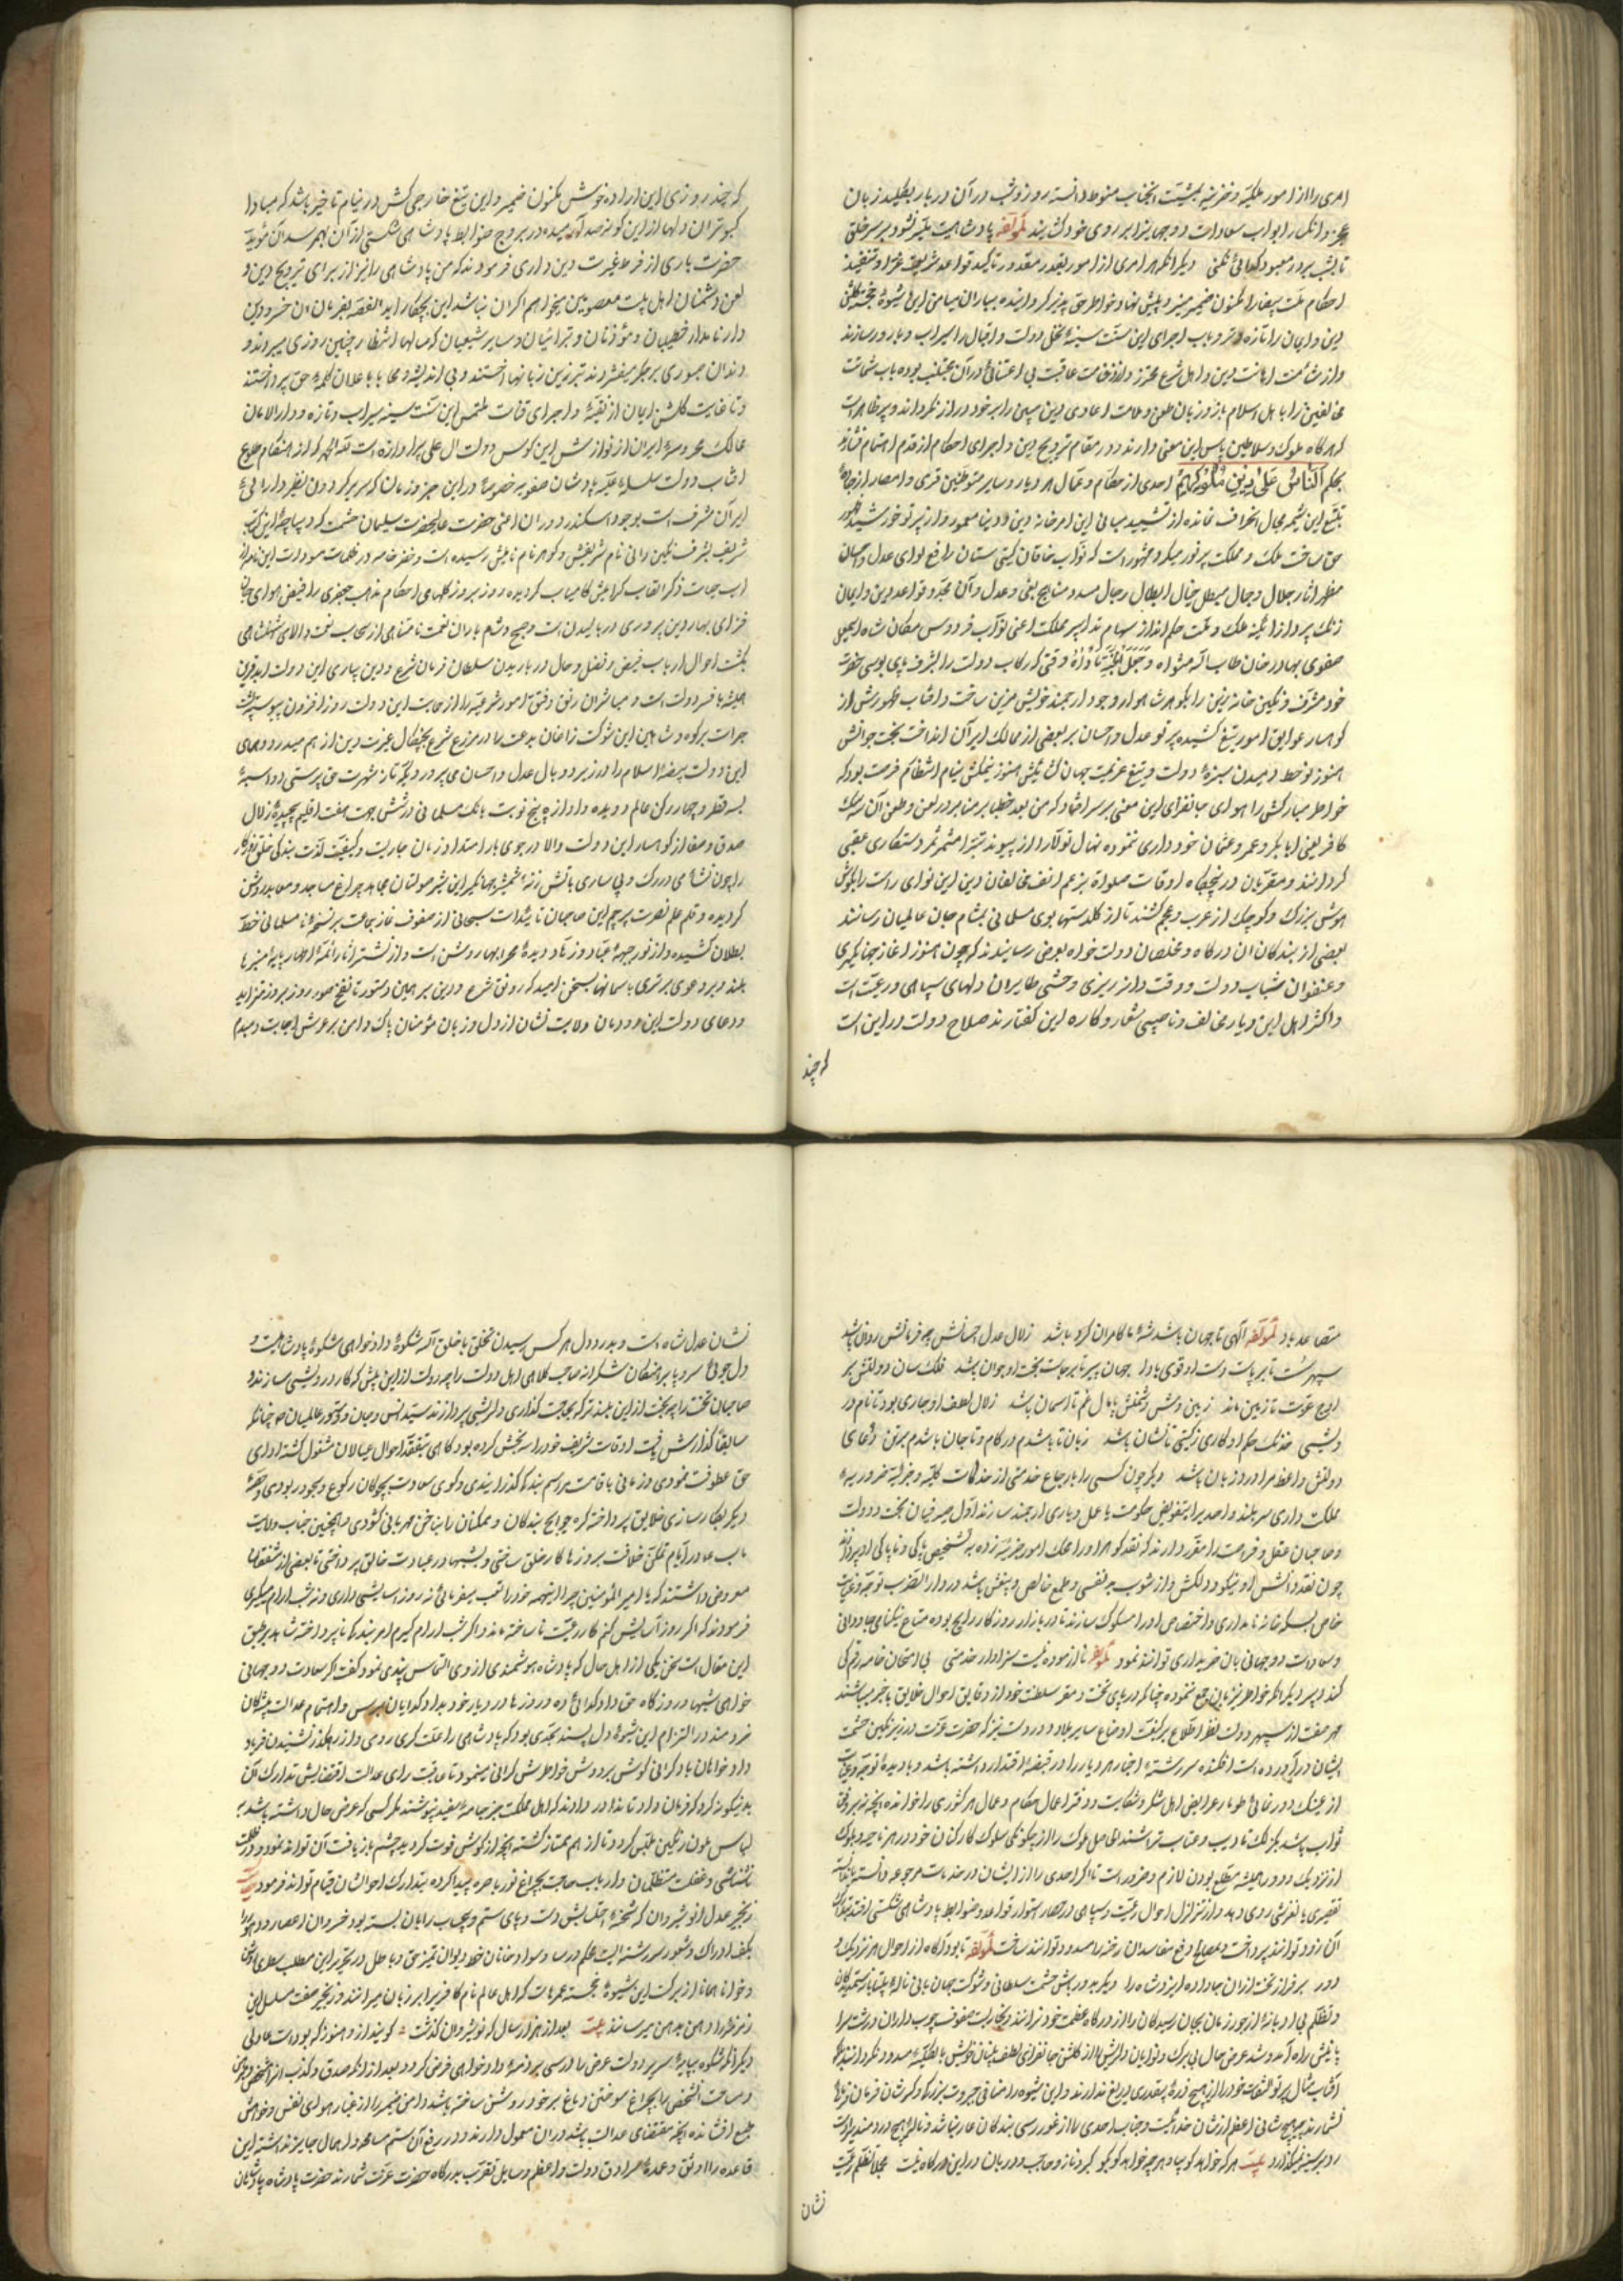 امری را از امور ملکیه و خزینه بمشیت انجناب منوط دانسته روز و شب در آن دربار بکلید زبان
عجز و انکسار ابواب سعادات دو جهانی را بر روی خود کشایند لمولفه پادشاهیت میسر نشود بر سر خلق
تا بشب بر در معبود گدائی نکنی دیگر آنکه هر امری از امور بقدر مقدور تاکید قواعد شریعت غرا و تنفیذ
احکام ملت بیضا را مکنون ضمیر منیر و پیش نهاد خواطر حق پذیر گردانیده بباران میامن این شیوهٔ خجسته گلشن
دین و ایمان را تازه و تر و باب اجرای این سنت سنیه نخل دولت و اقبال را سیراب و بارور سازند
و از شأمت اهانت دین و اهل شرع محترز و از وخامت عاقبت بی اعتنائی در آن مجتنب بوده باب شماتت
مخالفین را با اهل اسلام باز و زبان طعن و ملامت اعادی دین مبین را بر خود دراز نگردانند و پر ظاهر است
که هرگاه ملوک و سلاطین پاس این معنی دارند و در مقام ترویج دین و اجرای احکام از قدم اهتمام ننشانند
بحکم اَلنّاسُ عَلیٰ دینِ مُلُوکِهِم احدی از حکام و عمال هر دیار و سایر متوطنین قری و امصار از جادهٔ
تتبع این شیمه مجال انحراف نمانده از تشیید مبانی این امر خانهٔ دین و دنیا معمور و از پرتو خورشید ظهور
حق ساحت ملک و مملکت پر نور میگردد مشهور است که نواب خاقان گیتی ستان رافع لوای عدل و احسان
مظهر آثار جلال و جمال مبطل خیال ابطال رجال مسدد مناهج بغی و عدل و آن مجدد قواعد دین و ایمان
زنگ پرداز آئینه ملک و ملت حکم انداز سهام تدابیر مملکت اعنی نواب فردوس مکان شاه اسمعیل
صفوی بهادر خان طاب الله مثواه و جَعَلَ الجَنَّةَ مَأواهُ وقتی که رکاب دولت را بشرف پای بوسی حضرت
خود مشرف و نگین خانه زین را بگوهر شاهوار وجود ارجمند خویش مزین ساخت و آفتاب ظهورش از
کوهسار عوایق امور تیغ کشیده پرتو عدل و احسان بر بعضی از ممالک ایران انداخت بخت جوانش
هنوز نوخط دمیدن سبزهٔ دولت و تیغ عزیمت جهان کشائیش هنوز نمکش نیام انتظام فرصت بود که
خواطر مبارکش را هوای جانفزای این معنی بر سر افتاد که من بعد خطبا بر منابر در لعن و طعن آن سه
کافر یعنی ابابکر و عمر و عثمان خود داری ننموده نهال تولا را از پیوند تبرا مثمر ثمر رستگاری عقبی
گردانند و مقربان در پنجگاه اوقات صلواة بر زعم انف مخالفان دین این نوای راست را بگوش
هوش بزرگ و کوچک از عرب و عجم کشند تا از گلدستها بوی مسلمانی بمشام جان عالمیان رسانند
بعضی از بندگان آن درگاه و مخلصان دولتخواه بعرض رسانیدند که چون هنوز آغاز جهانگیری
و عنفوان شباب دولت و وقت دانه ریزی وحشی طایران دلهای سپاهی و رعیت است
و اکثر اهل این دیار مخالف و ناصبی شعار و کاره این گفتارند صلاح دولت در این است
که چند
که چند روزی این اراده خوش مکنون ضمیر و این تیغ خارجی کش در نیام تاخیر باشد که مبادا
کبوتران دلها از این گونه صداها رمیده در بروج ضوابط پادشاهی شکستی از آن بهم رسد آن مؤید
حضرت باری از فرط غیرت دین داری فرمودند که من پادشاهی را نیز از برای ترویج دین و
لعن دشمنان اهل بیت معصومین میخواهم اگر آن نباشد این بچکار آید القصه بفرمان آن خسرو دین
دار نامدار خطیبان و مؤذنان و تبرائیان و سایر شیعیان که سالها انتظار چنین روزی میبردند و
دندان صبوری بر جگر میفشردند تبرزین زبانها آختند و بی اندیشه و محابا باعلان کلمهٔ حق پرداختند
و تا غایت گلشن ایمان از تقیه و اجرای قنات ملتمس این سنت سنیه سیراب و تازه و دار الامان
ممالک محروسهٔ ایران از نوازش این کوس دولت ال علی پر آوازه است لله الحمد که از هنگام طلوع
آفتاب دولت سلسلهٔ علیه پادشاهان صفویه خصوصا در این جزو زمان که سریر گردون نظیر دارائی
ایران مشرف است بوجود اسکندر دوران اعنی حضرت علیحضرت سلیمان حشمت که دیباچهٔ این کتاب
شریف بشرف نگین دانی نام شریفش و گوهر نام نامیش رسیده است و خضر خامه در ظلمات سواد این نامه از
آب حیات ذکر القاب گرامیش کامیاب گردیده روز بروز گلهای احکام مذهب جعفری را فیض هوای جان
فزای بهار دین پروری در بالیدن است و صبح و شام باران نعمت نامتناهی از سحاب نعمت والای شهنشاهی
بکشت احوال ارباب فیض و فضل و حال در باریدن سلطان فرمان شرع و دین بیاری این دولت ابد قرین
همیشه با فر دولت است و مباشران رتق و فتق امور شرعیه را از حمایت این دولت روز افزون پیوسته پشت
جرات بر کوه و شاهین این شوکت زاغان بدعت را در مزرع شرع بچنگال غیرت دین از هم میدرد و همای
این دولت بیضهٔ اسلام را در زیر دو بال عدل و احسان می پرورد یکه تاز شهرت حق پرستی او آسیمهٔ
بسه قطر و چهار رکن عالم دویده و آوازهٔ پنج نوبت بانگ مسلمانی در شش جهت هفت اقلیم پیچیده زلال
صدق و صفا از کوهسار این دولت والا در جوی بار امتداد زمان جاریست و کیفیت لذت بندگی خالق
را چون نشأ می در رگ و پی ساری بآتش زنهٔ شمشیر جهانگیر این شیر صولتان مجاهد چراغ مساجد و معابد روشن
گردیده و قلم علم نصرت پرچم این صاحبان تائیدات سبحانی از صفوف نماز جماعت بر نسخهٔ نامسلمانی خط
بطلان کشیده و از نور جبههٔ عباد و زهاد دیدهٔ محرابها روشن است و از نشر آثار ائمهٔ اطهار پایهٔ منبرها
بلند در دعوی برتری با سمانها بسخن امید که رونق شرع و دین بر همین دستور تا نفخ صور روز بروز فزاید
و دعای دولت این دودمان ولایت نشان از دل و زبان مؤمنان پاک دامن بر عرش اجابت دمبدم
متصاعد باد لمولفه الهی تا جهان باشد شه ما کامران گردد باشد زلال عدل احسانش بهر فرمانش روان باشد
سپهرش تا بر پا دست او قوی بادا جهان پیر تا برجاست بخت او جوان باشد فلک سان دولتش بر
اوج عزت تا زمین ماند زمین وش دشمنش پامال غم تا آسمان باشد زلال لطف او جاری بود تا نام در
دلشبی خدنگ حکم او کاری ز گیتی تا نشان باشد زبان تا باشدم در کام و تا جان باشدم بر تن دعای
دولتش واعظ مرا ورد زبان باشد دیگر چون کسی را بارجاع خدمتی از خدمات کلیه و جزئیه ضروریهٔ
مملکت داری سربلند و احدی را بتفویض حکومت یا عمل دیاری ارجمند سازند اول صیرفیان بخت و دولت
و صاحبان عقل و فرصت را مقرر دارند که نقد گوهر او را بمحک امور جزئیه زده به تشخیص پاکی و ناپاکی او پردازند
چون نقد دانش او نیکو و دلکش و از شوب بد نفسی و طمع خالص و بیغش باشد در دار الضرب توجه و عنایت
خاص بسکه خانهٔ نامداری و اختصاص او را مسکوک سازند تا در بازار روزگار رایج بوده متاع نیکنامی جاودانی
و سعادت دو جهانی بآن خریداری توانند نمود لمولفه ناآزموده نیست سزاوار خدمتی بی امتحان خامه رقم کی
کند دبیر دیگر آنکه خواطر نیز باین جمع ننموده چنانکه در پای تخت و مقر سلطنت خود از دقایق احوال خلایق با خبر میباشند
مهر صفت از سپهر دولت نظر اطلاع بر کیفیت اوضاع سایر بلاد دور دست نیز که حضرت عزت در زیر نگین حشمت
ایشان درآورده است افکنده سررشتهٔ اخبار هر دیار را در قبضهٔ اقتدار داشته باشند و بدیدهٔ توجه و عنایت
از عینک دوربین طومار عرایض اهل شکر و شکایت و دفتر اعمال حکام و عمال هر کشوری را خوانده آنچه نه بر وفق
ثواب باشد بگزلک تادیب و عتاب تراشند الحاصل ملوک را از چگونگی سلوک کارکنان خود در هر ناحیه و بلوک
از نزدیک و دور همیشه مطلع بودن لازم و ضرور است تا اگر احدی را از ایشان در خدمات مرجوعه دانسته یا نادانسته
تقصیری یا لغزشی روی دهد و از تزلزل احوال رعیت و سپاهی در حصار استوار قواعد و ضوابط پادشاهی شکستی افتد بتدارک
آن زود توانند پرداخت و بمصالح دفع مفاسد آن رخنه را مسدود توانند ساخت لمولفه تا بود آگاه از احوال هر نزدیک و
دور بر فراز تخت از آن جا داده ایزد شاه را دیگر بدورباش حشمت سلطانی و شوکت جهان بانی نالهٔ بیتاب ستمدیدگان
و تظلم بی ادبانهٔ از جور زمان بجان رسیدگان را از درگاه عظمت خود نرانند و نخوت صفوف چوب داران درشت سرا
پائیش راه آمد و شد عرض حال بی برگ و نوایان دلریش را از گلشن جانفزای لطف پنهان خویش بالکلیه مسدود نگردانند
آفتاب مثال پرتو التفات خود را از هیچ ذرهٔ بیقدری دریغ ندارند و این شیوه را منافی جبروت بزرگی و کسر شان فرمان فرمائی
نشمارند چه هیچ شانی اعظم از شان خدا نیست و جناب احدی را از غور رسی بندگان عار نباشد و ناله هیچ دردمند بی رأفت
رد بر سینه نمیگذارد بیت هر که خواهد گو بیا و هر چه خواهد گو بگو کبر و ناز و حاجب و دربان در این درگاه نیست مجملا تظلم رعیت
نشان
نشان عدل شاه است و بدرد دل هر کس رسیدن تخلق باخلاق الله شکوهٔ دادخواهی شکوهٔ پادشاهیست و
دل جوئی سر و پا برهنگان شکرانهٔ صاحب کلاهی اهل دولت را چه دولت از این بیش که کار درویشی سازند و
صاحبان تخت را چه بخت از این بلندتر که بحاجت گذاری دلریشی پردازند سید انس و جان و دستور عالمیان چنانکه
سابقا گذارش یافت اوقات شریف خود را سه بخش کرده بود گاهی بتفقد احوال عیالان مشغول گشته ادای
حق عطوفت نمودی و زمانی باقامت مراسم بندگی گذرانیدی و گوی سعادت بچوگان رکوع و سجود ربودی و حصهٔ
دیگر بکارسازی خلایق پرداخته گره حوایج بندگان و مسکینان را بناخن مهربانی گشودی و همچنین جناب ولایت
مآب در ایام تمکین خلافت بروزها کار خلق ساختی و بشبها در عبادت خالق پرداختی تا بعضی از مشفقان
معروض داشتند که یا امیر المؤمنین چرا اینهمه خود را تعب میفرمائی نه روز آسایشی داری و نه شب آرام میگیری
فرمودند که اگر روز آسایش کنم کار رعیت ناساخته ماند و اگر شب آرام گیرم امر بندگی ناپرداخته شاهد بر طبق
این مقال است سخن یکی از اهل حال که پادشاه هوشمندی از وی التماس پندی نمود گفت اگر سعادت دو جهانی
خواهی شبها در درگاه حق داد گدائی ده و روزها در دربار خود بداد گدایان برس و اهتمام عدالت پیشگان
خردمند در التزام این شیوهٔ دل پسند بحدی بود که پادشاهی را علت کری روی داد از رهگذر نشنیدن فریاد
داد خواهان بار گرانی گوش بر دوش خواطرش گرانی مینمود تا عاقبت رای عدالت اقتضایش تدارک آن
بدینگونه کرد که فرمان داد تا ندا در دادند که اهل مملکت جز جامهٔ سفید نپوشند مگر کسی که عرض حال داشته باشد به
لباس ملون رنگین ملبس گردد تا از هم ممتاز گشته آنچه از گوش فوت گردید بچشم باز یافت آن تواند نمود و در ظلمت
ناشناسی و غفلت متظلمان و ارباب حاجت بچراغ نور باصره پیدا کرده بتدارک احوالشان قیام تواند فرمود
زنجیر عدل انوشیروان که شحنهٔ احتسابش دست و پای ستم و حجاب را بآن بسته بود خسروان اعصار و دهور را
بکف ادراک و شعور سررشته ایست محکم درسا و سواد خانان خط دیوان تمیز حق و باطل در تحریر این مطلب سطری
دخوانا همانا از برکت این شیوهٔ خجسته ثمر است که اهل عالم نام کافر را بر زبان میرانند و زنجیر صفت مسلسل این
زمزمه را دهن بدهن میرسانند بیت بعد از هزار سال که نوشیروان گذشت گویند از و هنوز که بوداست عادلی
دیگر آنکه شکوه بپایهٔ سریر دولت عرض مادرسی بر ذمهٔ دادخواهی فرض گردد بعد از آنکه صدق و کذب
و مساحت تشخیص را بچراغ سوختن دماغ بر خود روشن ساخته باشد دامن ضمیر را از غبار هوای نفس و خواهش
طبع افشانده آنچه مقتضای عدالت باشد در آن معمول دارند و در رفع آن ستم مسامحه و اهمال جایز نداشته این
قاعده را اوثق و عمدهٔ سرادق دولت و اعظم وسایل تقرب بدرگاه حضرت عزت شمارند حضرت پادشاه پادشاهان